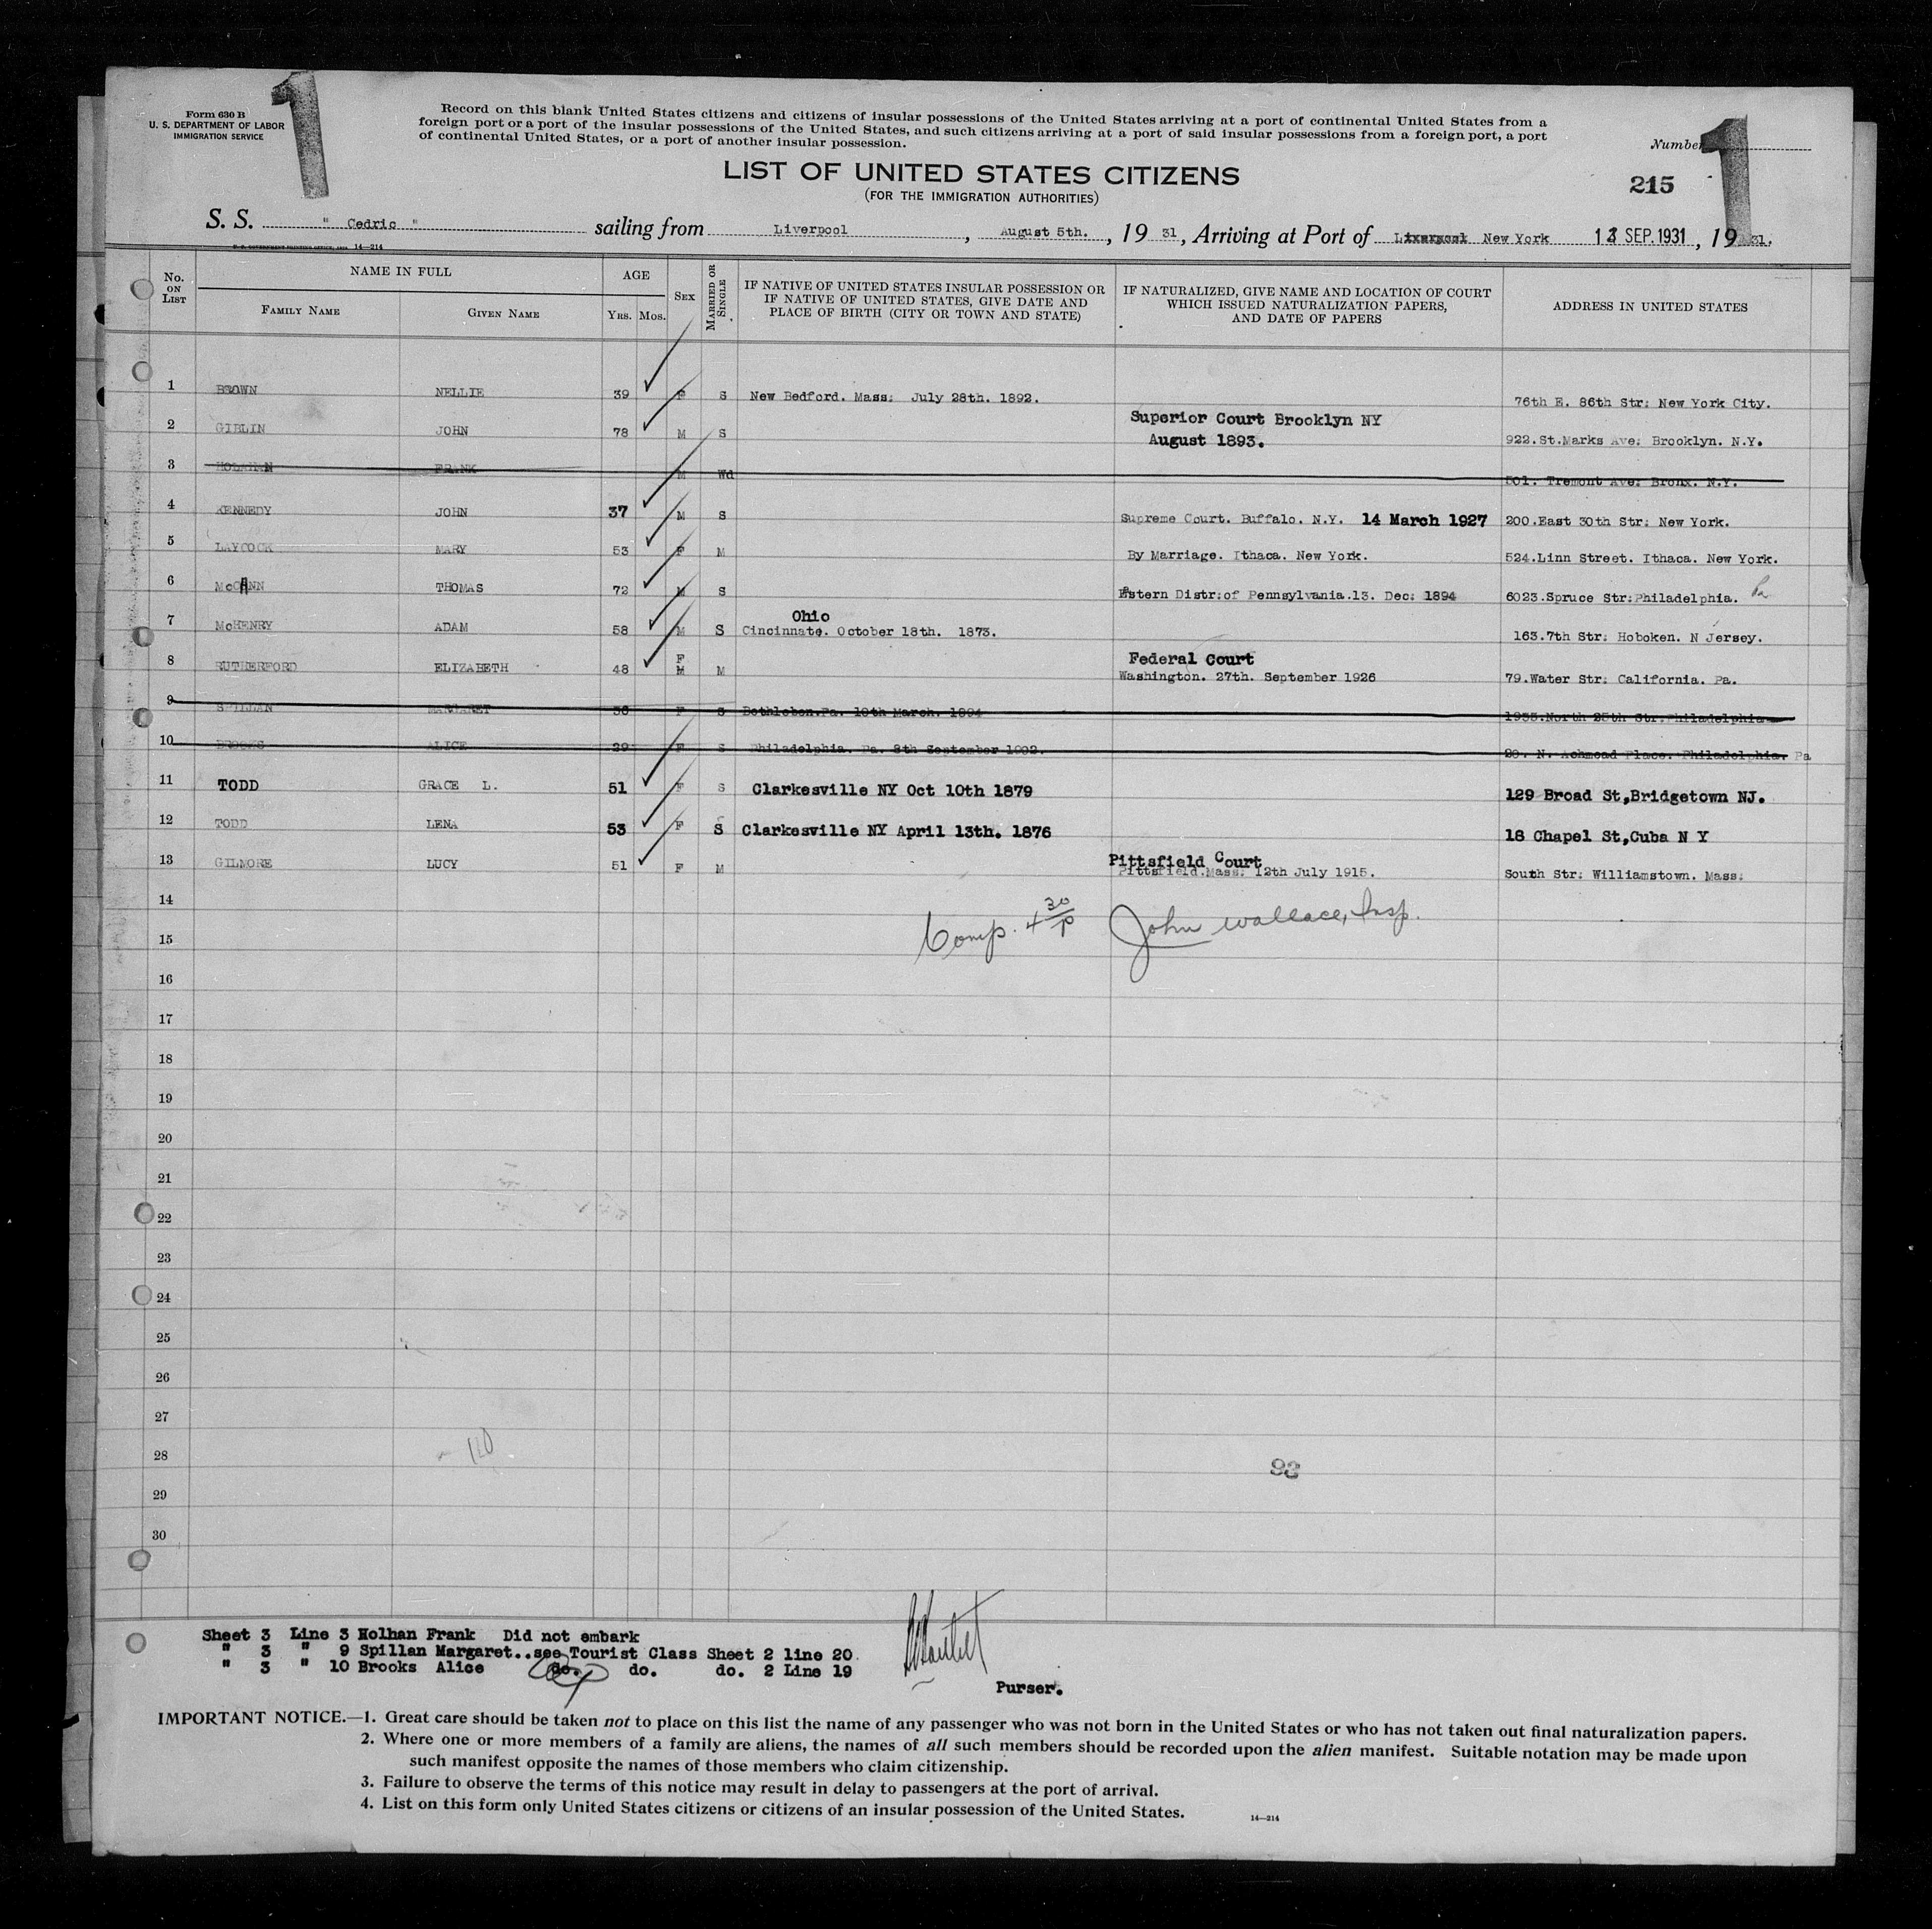 1
Form 630 B
U. S. DEPARTMENT OF LABOR
IMMIGRATION SERVICE
Record on this blank United States citizens and citizens of insular possessions of the United States arriving at a port of continental United States from a
foreign port or a port of the insular possessions of the United States, and such citizens arriving at a port of said insular possessions from a foreign port, a port
of continental United States, or a port of another insular possession.
Number 1
LIST OF UNITED STATES CITIZENS
(FOR THE IMMIGRATION AUTHORITIES)
215
S. S. " Cedric " sailing from Liverpool, August 5th., 19 31, Arriving at Port of Liverpool New York SEP. 1931, 19 31.
14—214
No. ON LIST
NAME IN FULL
FAMILY NAME
GIVEN NAME
AGE
YRS. MOS.
SEX
MARRIED OR SINGLE
IF NATIVE OF UNITED STATES INSULAR POSSESSION OR
IF NATIVE OF UNITED STATES, GIVE DATE AND
PLACE OF BIRTH (CITY OR TOWN AND STATE)
IF NATURALIZED, GIVE NAME AND LOCATION OF COURT
WHICH ISSUED NATURALIZATION PAPERS,
AND DATE OF PAPERS
ADDRESS IN UNITED STATES
1 BROWN NELLIE 39 F S New Bedford. Mass: July 28th. 1892. 76th E. 86th Str: New York City.
2 GIBLIN JOHN 78 M S Superior Court Brooklyn NY
August 1893. 922.St.Marks Ave: Brooklyn. N.Y.
3 HOLAHAN FRANK M Wd 501. Tremont Ave: Bronx. N.Y.
4 KENNEDY JOHN 37 M S Supreme Court. Buffalo. N.Y. 14 March 1927 200.East 30th Str: New York.
5 LAYCOCK MARY 53 F M By Marriage. Ithaca. New York. 524.Linn Street. Ithaca. New York.
6 McCANN THOMAS 72 M S Estern Distr:of Pennsylvania.13. Dec: 1894 6023.Spruce Str:Philadelphia. Pa
7 McHENRY ADAM 58 M S Ohio
Cincinnate. October 18th. 1873. 163.7th Str: Hoboken. N Jersey.
8 RUTHERFORD ELIZABETH 48 F M M Federal Court
Washington. 27th. September 1926 79.Water Str: California. Pa.
9 SPILLAN MARGARET F S Bethleben.Pa. 10th March. 1894 1935.North 25th Str:Philadelphia
10 BROOKS ALICE 39 F S Philadelphia. Pa. 8th September 1892. 20. N. Achmead Place. Philadelphia. Pa
11 TODD GRACE L. 51 F S Clarkesville NY Oct 10th 1879 129 Broad St,Bridgetown NJ.
12 TODD LENA 53 F S Clarkesville NY April 13th. 1876 18 Chapel St,Cuba N Y
13 GILMORE LUCY 51 F M Pittsfield Court
Pittsfield.Mass: 12th July 1915. South Str: Williamstown. Mass:
14
Comp. 4 30/p John Wallace, Insp.
15
16
17
18
19
20
21
22
23
24
25
26
27
28
110
93
29
30
Sheet 3 Line 3 Holhan Frank Did not embark
" 3 " 9 Spillan Margaret..see Tourist Class Sheet 2 line 20
" 3 " 10 Brooks Alice do. do. do. 2 Line 19
Purser.
IMPORTANT NOTICE.—1. Great care should be taken not to place on this list the name of any passenger who was not born in the United States or who has not taken out final naturalization papers.
2. Where one or more members of a family are aliens, the names of all such members should be recorded upon the alien manifest. Suitable notation may be made upon
such manifest opposite the names of those members who claim citizenship.
3. Failure to observe the terms of this notice may result in delay to passengers at the port of arrival.
4. List on this form only United States citizens or citizens of an insular possession of the United States.
14—214